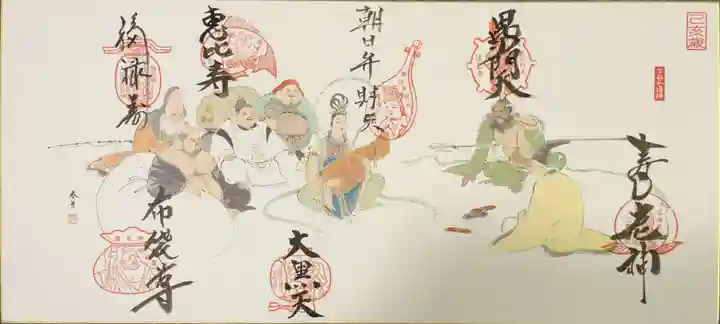 己亥歳
寿老神
毘沙門天
朝日弁財天
大黒天
恵比寿
布袋尊
福禄寿